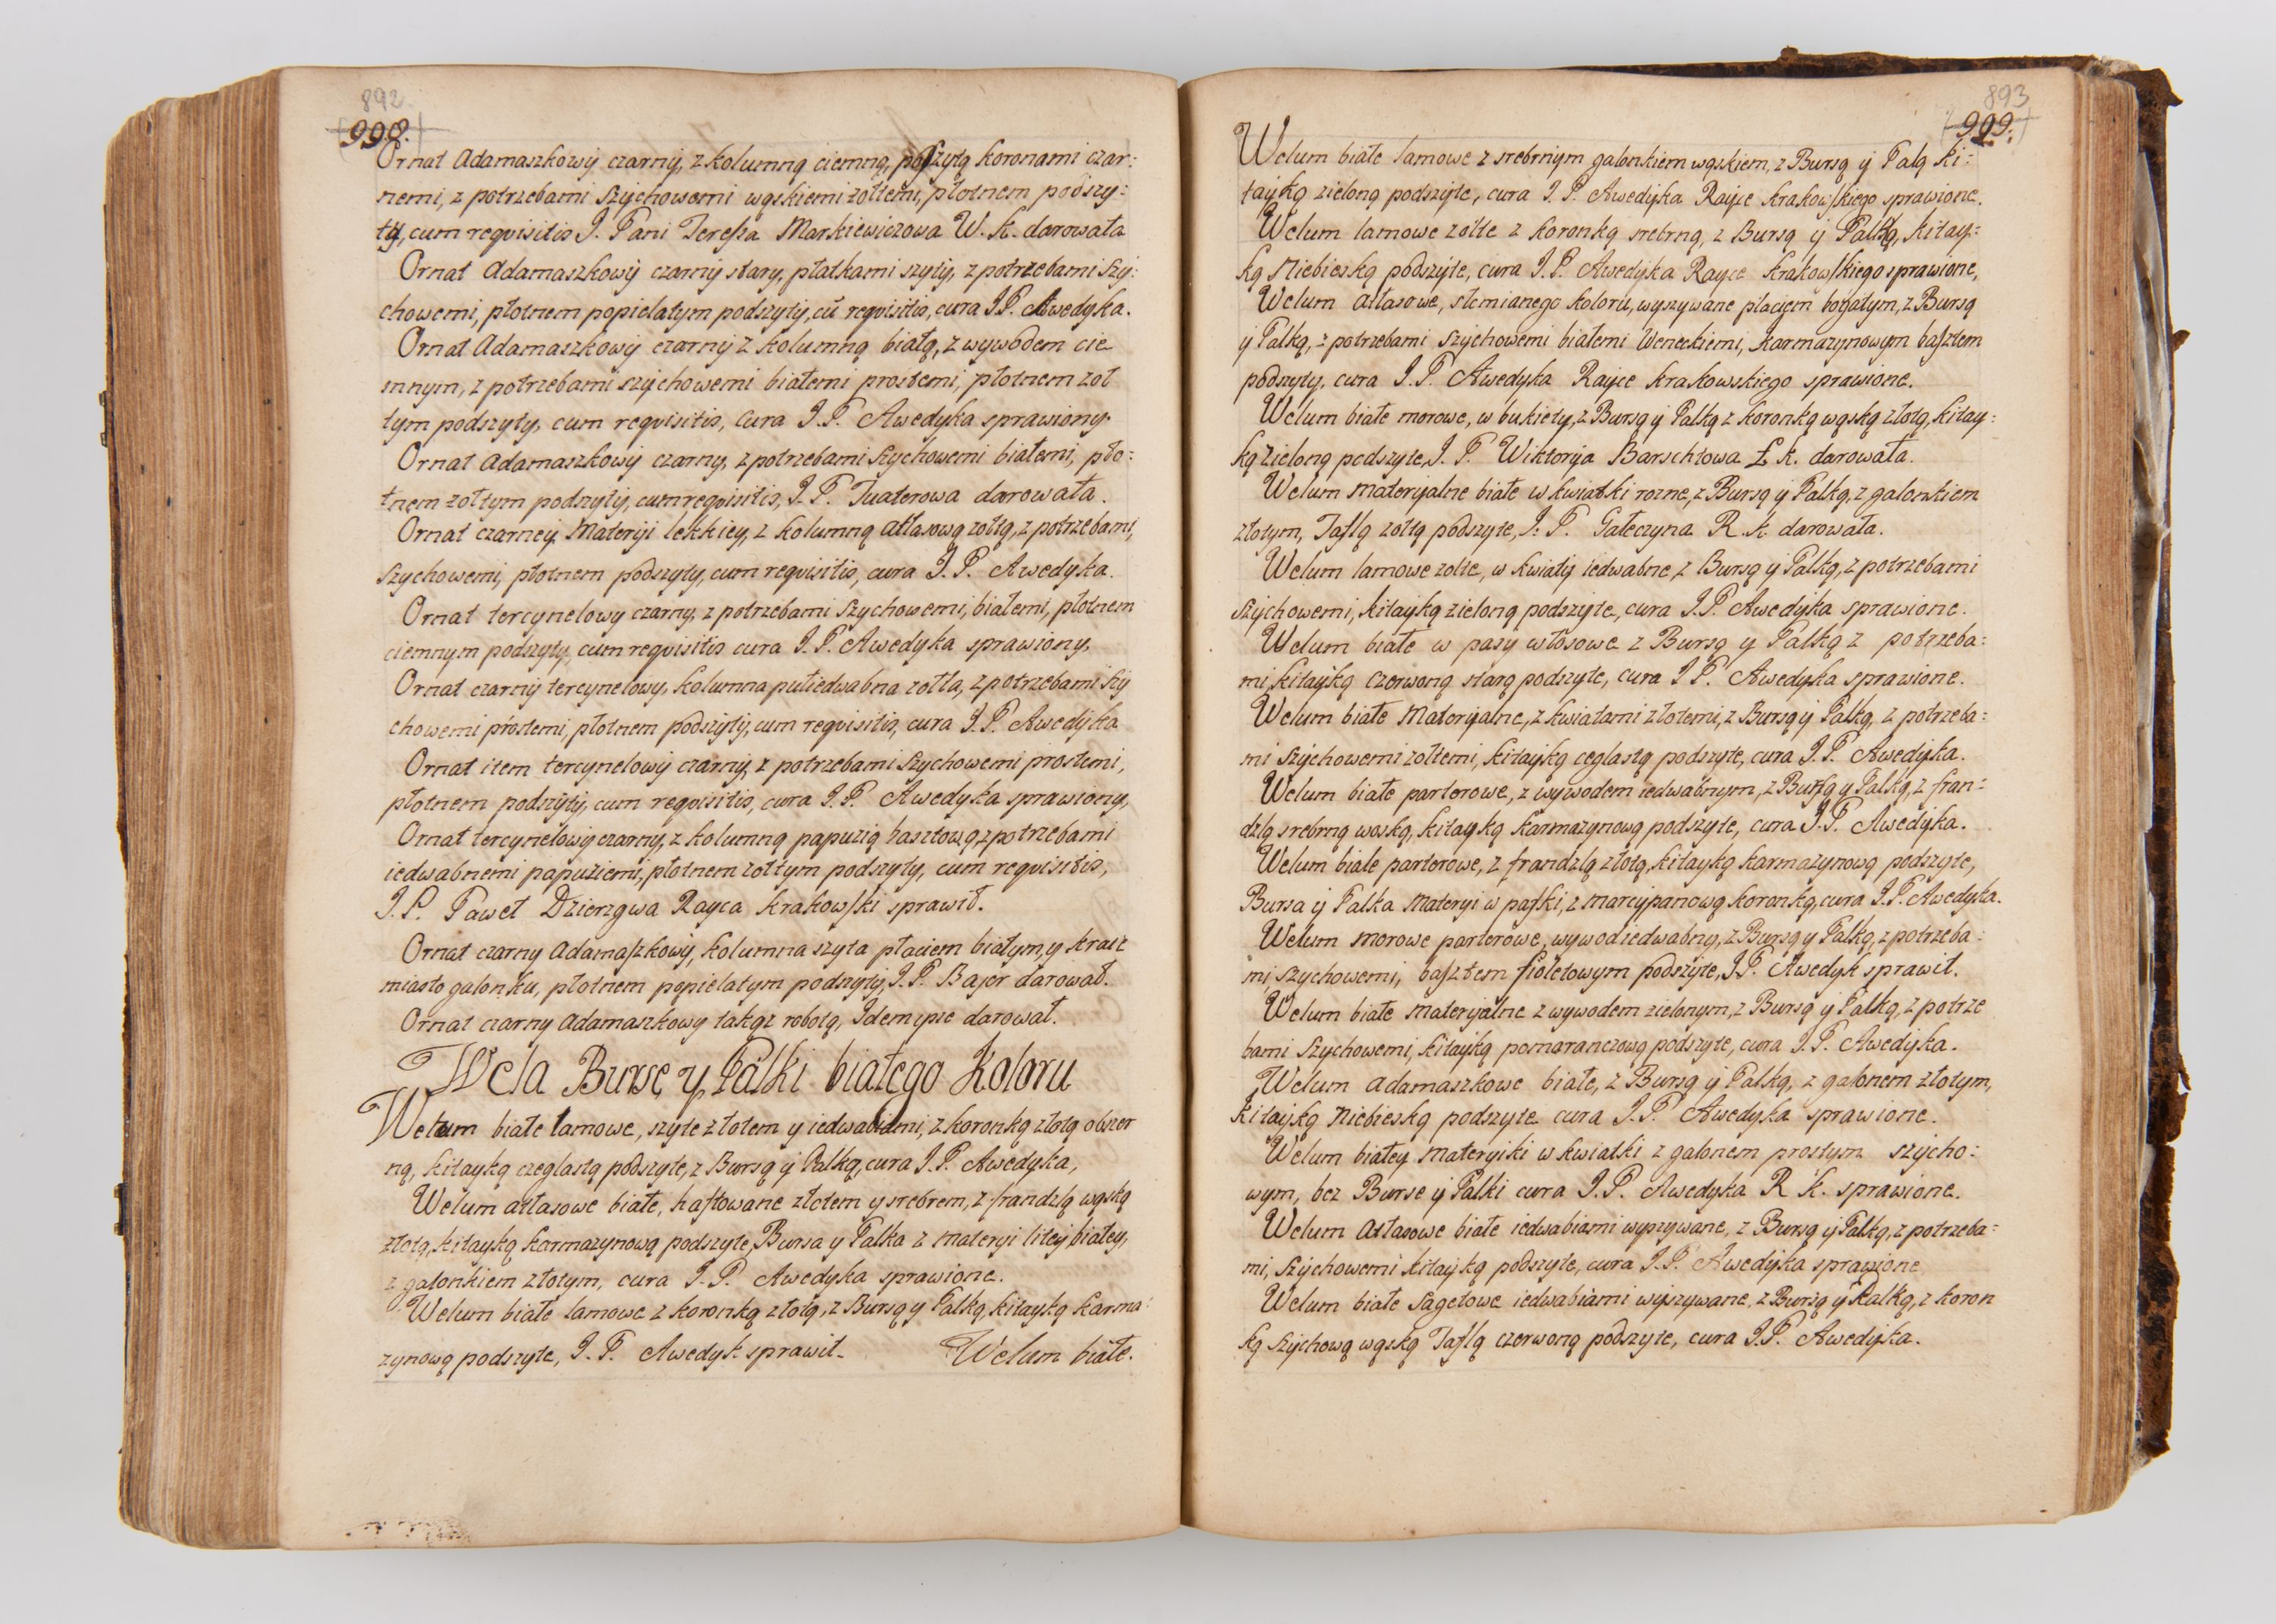 892
998.
Ornat Adamaszkowy czarny, z kolumną ciemną, poszytą koronami czar:
nemi, z potrzebami szychowemi wąskiemi zołtemi, płotnem podszy:
ty, cum reqvisitis J. Pani Teressa Markiewiczowa W. K. darowała
Ornat Adamaszkowy czarny stary, płatkami szyty, z potrzebami szy:
chowemi, płotnem popielatym podszyty, cū reqvisitis, cura J.P. Awedyka.
Ornat Adamaszkowy czarny z kolumną białą, z wywodem cie
mnym, z potrzebami szychowemi białemi prostemi, płotnem zoł
tym podszyty, cum reqvisitis, cura J.P. Awedyka sprawiony.
Ornat Adamaszkowy czarny, z potrzebami szychowemi białemi, pło:
tnem zołtym podszyty, cum reqvisitis, J.P. Tuaterowa darowała.
Ornat czarney Materyi lekkiey, z kolumną atłasową zołtą, z potrzebami,
szychowemi, płotnem podszyty, cum reqvisitis, cura J.P. Awedyka.
Ornat tercynelowy czarny, z potrzebami szychowemi, białemi, płotnem
ciemnym podszyty, cum reqvisitis cura J.P. Awedyka sprawiony,
Ornat czarny tercynelowy, kolumna pułiedwabna zołta, z potrzebami szy
chowemi prostemi, płotnem podszyty, cum reqvisitis, cura J.P. Awedyka
Ornat item tercynelowy czarny, z potrzebami szychowemi prostemi,
płotnem podszyty, cum reqvisitis, cura J.P. Awedyka sprawiony,
Ornat tercynelowy czarny, z kolumną papuzią basztową, z potrzebami
iedwabnemi papuziemi, płotnem zołtym podszyty, cum reqvisitis,
J.P. Paweł Dzierzgwa Rayca krakowski sprawił.
Ornat czarny Adamaszkowy, kolumna szyta płaciem białym, y krasz
miasto galonku, płotnem popielatym podszyty, J.P. Bajer darował.
Ornat czarny Adamaszkowy takąż robotą, Idem ipse darował.
Wela Burse, y Palki białego Koloru
Welum białe lamowe, szyte złotem y iedwabiami, z koronką złotą obszer
ną, kitayką czeglastą podszyte, z Bursą y Palką, cura J.P. Awedyka,
Welum atłasowe białe, haftowane złotem y srebrem, z frandzlą wąską
złotą, kitayką karmazynową podszyte, Bursa y Palka z materyi litey białey,
z galonkiem złotym, cura J.P. Awedyka sprawione.
Welum białe lamowe z koronką złotą, z Bursą y Palką, kitayką karma:
zynową podszyte, J.P. Awedyk sprawił.
Welum białe.
893
999.
Welum białe lamowe z srebrnym galonkiem wąskiem, z Bursą y Palą ki:
tayką zieloną podszyte, cura J.P. Awedyka Rayce krakowskiego sprawione.
Welum lamowe zołte z koronką srebrną, z Bursą y Palką, kitay:
ką Niebieską podszyte, cura J.P. Awedyka Rayce krakowskiego sprawione,
Welum atłasowe, słomianego koloru, wyszywane płaciem bogatym, z Bursą
y Palką, z potrzebami szychowemi białemi Weneckiemi, karmazynowym basztem
podszyty, cura J.P. Awedyka Rayce krakowskiego sprawione.
Welum białe morowe, w bukiety, z Bursą y Palką z koronką wąską złotą, kitay:
ką zieloną podszyte, J.P. Wiktorya Barschtowa Ł. K. darowała.
Welum Materyalne białe w kwiatki rozne, z Bursą y Palką, z galonkiem
złotym, Taflą zołtą podszyte, J.P. Gałeczyna R. K. darowała.
Welum lamowe zołte, w kwiaty iedwabne, z Bursą y Palką, z potrzebami
szychowemi, kitayką zieloną podszyte, cura J.P. Awedyka sprawione.
Welum białe w pasy włosowe z Bursą y Palką z potrzeba:
mi, kitayką czerwoną starą podszyte, cura J.P. Awedyka sprawione.
Welum białe Materyalne, z kwiatami złotemi, z Bursą y Palką, z potrzeba:
mi szychowemi zołtemi, kitayką ceglastą podszyte, cura J.P. Awedyka.
Welum białe parterowe, z wywodem iedwabnym, z Bursą y Palką, z fran:
dzlą srebrną woską, kitayką karmazynową podszyte, cura J.P. Awedyka.
Welum białe parterowe, z frandzlą złotą, kitayką karmazynową podszyte,
Bursa y Palka Materyi w paski, z marcypanową koronką, cura J.P. Awedyka.
Welum morowe parterowe, wywod iedwabny, z Bursą y Palką, z potrzeba:
mi, szychowemi, basztem fioletowym podszyte, J.P. Awedyk sprawił.
Welum białe Materyalne z wywodem zielonym, z Bursą y Palką, z potrze
bami szychowemi, kitayką pomaranczową podszyte, cura J.P. Awedyka.
Welum Adamaszkowe białe, z Bursą y Palką, z galonem złotym,
kitayką Niebieską podszyte cura J.P. Awedyka sprawione.
Welum białey Materyiki w kwiatki z galonem prostym szycho:
wym, bez Burse y Palki cura J.P. Awedyka R. K. sprawione.
Welum Atłasowe białe iedwabiami wyszywane, z Bursą y Palką, z potrzeba:
mi, szychowemi kitayką podszyte, cura J.P. Awedyka sprawione
Welum białe Sagetowe iedwabiami wyszywane, z Bursą y Palką, z koron
ką szychową wąską Taflą czerwoną podszyte, cura J.P. Awedyka.